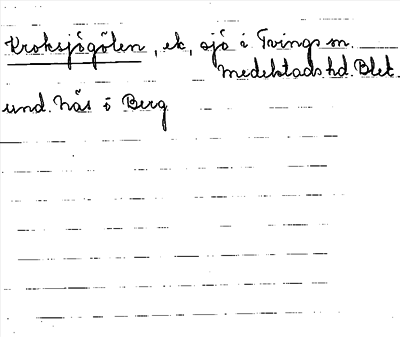 Kroksjögölen, ek, sjö i Tvings sn.
Medelstads hd. Blek.
und. Näs ö Berg